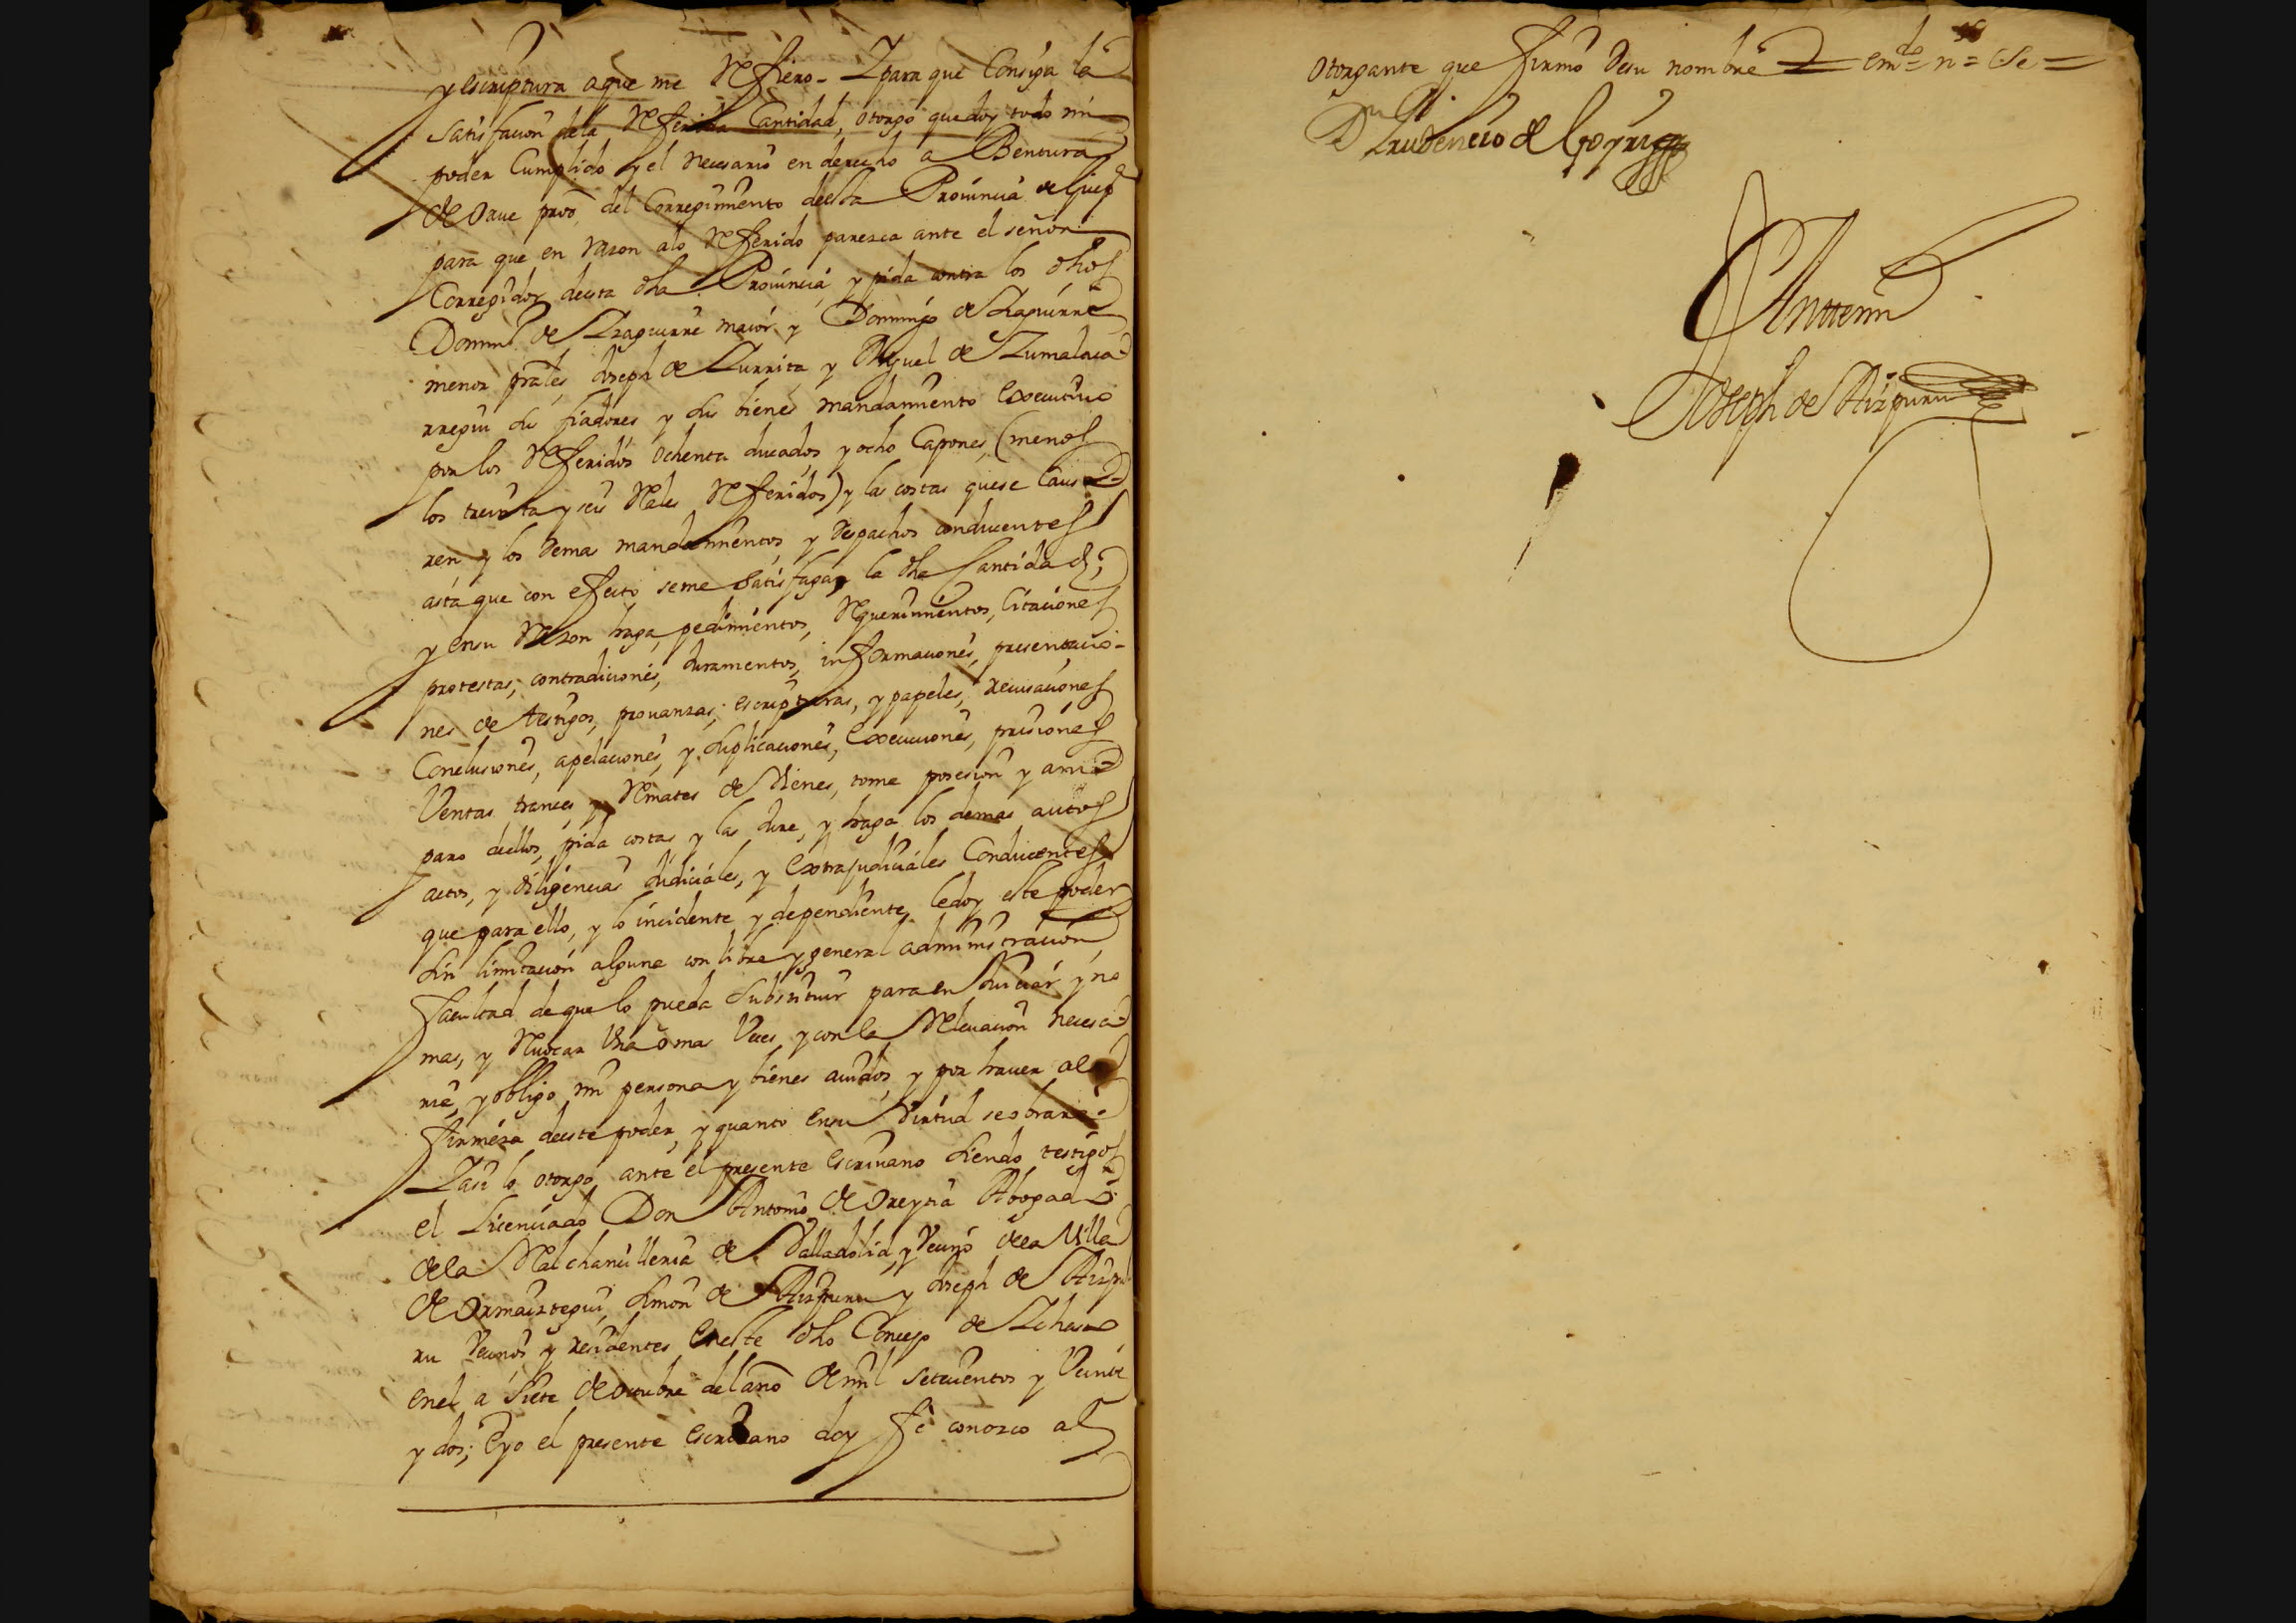 y escriptura aque me Refiero - Y para que Consiga la
satisfacion dela Referida Cantidad, otorgo que doy todo mi
poder Cumplido y el necesario en derecho a Bentura
de Orue pro del Corregimiento desta Prouincia de Guip
para que en razon alo Referido parezca ante el señor
Corregidor desta dha Prouincia y pida contra los dhos
Domingo de Yzaguirre maior y Domingo de Yzaguirre
menor prales, Joseph de Zurrita y Miguel de Zumalaca
rregui sus fiadores y sus bienes mandamiento Executiuo
por los Referidos ochenta ducados y ocho Capones, (menos
los treinta y seis Reales Referidos) y las costas que se Causa
ren y los demas mandamientos, y despachos conducentes
asta que con efecto se me satisfaga la dha Cantidad;
y ensu Razon haga pedimientos, Requerimientos, Citaciones
protestas, contradiciones, Juramentos, informaciones, presentacio-
nes de testigos, prouanzas, escripturas, y papeles, recusaciones
Conclusiones, apelaciones, y suplicaciones, Execuciones, prisiones
Ventas trances, y Remates de Vienes, tome posesion y am
paro dellos, pida costas y las Jure, y haga los demas autos
actos, y diligencias Judiciales, y Extrajudiciales Conducentes
que para ello, y lo incidente y dependiente, ledoy este poder
sin limitacion alguna con libre y general administracion
facultad de que lo pueda substituir para en Juiciar y no
mas, y Reuocar Vna o mas Veces y con la Releuacion necesa
ria, y obligo mi persona y bienes auidos, y por hauer a la
firmeza deeste poder, y quanto ensu Virtud se obrare
Yasi lo otorgo ante el presente escriuano siendo testigos
el Licenciado Don Antonio de Oreytia Abogado
dela Real chancilleria de Valladolid, y Vecino dela Villa
de Ormaiztegui, Simon de Aizpuru y Joseph de Aizpu
ru Vecinos y residentes Eneste dho Concejo de Ychaso
enel a Siete de octubre del año de mil setecientos y Veinte
y dos; Eyo el presente escriuano doy fe conozco al
otorgante que firmo desu nombre = emdo = n = Se =
Dn Prudencio de
Antemi
Joseph de Aizpuru